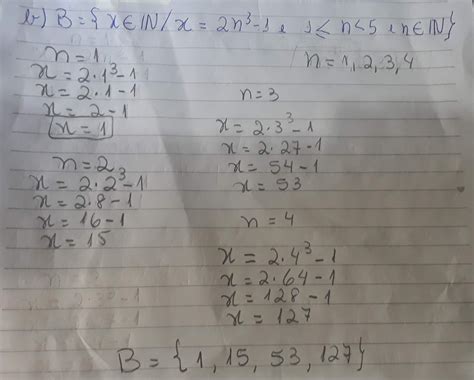 b) B = {x ∈ IN / x = 2n³-1 e 1 ≤ n < 5 e n ∈ IN}
n = 1, 2, 3, 4
n = 1
x = 2·1³-1
x = 2·1-1
x = 2-1
x = 1
n = 2
x = 2·2³-1
x = 2·8-1
x = 16-1
x = 15
n = 3
x = 2·3³-1
x = 2·27-1
x = 54-1
x = 53
n = 4
x = 2·4³-1
x = 2·64-1
x = 128-1
x = 127
B = {1, 15, 53, 127}